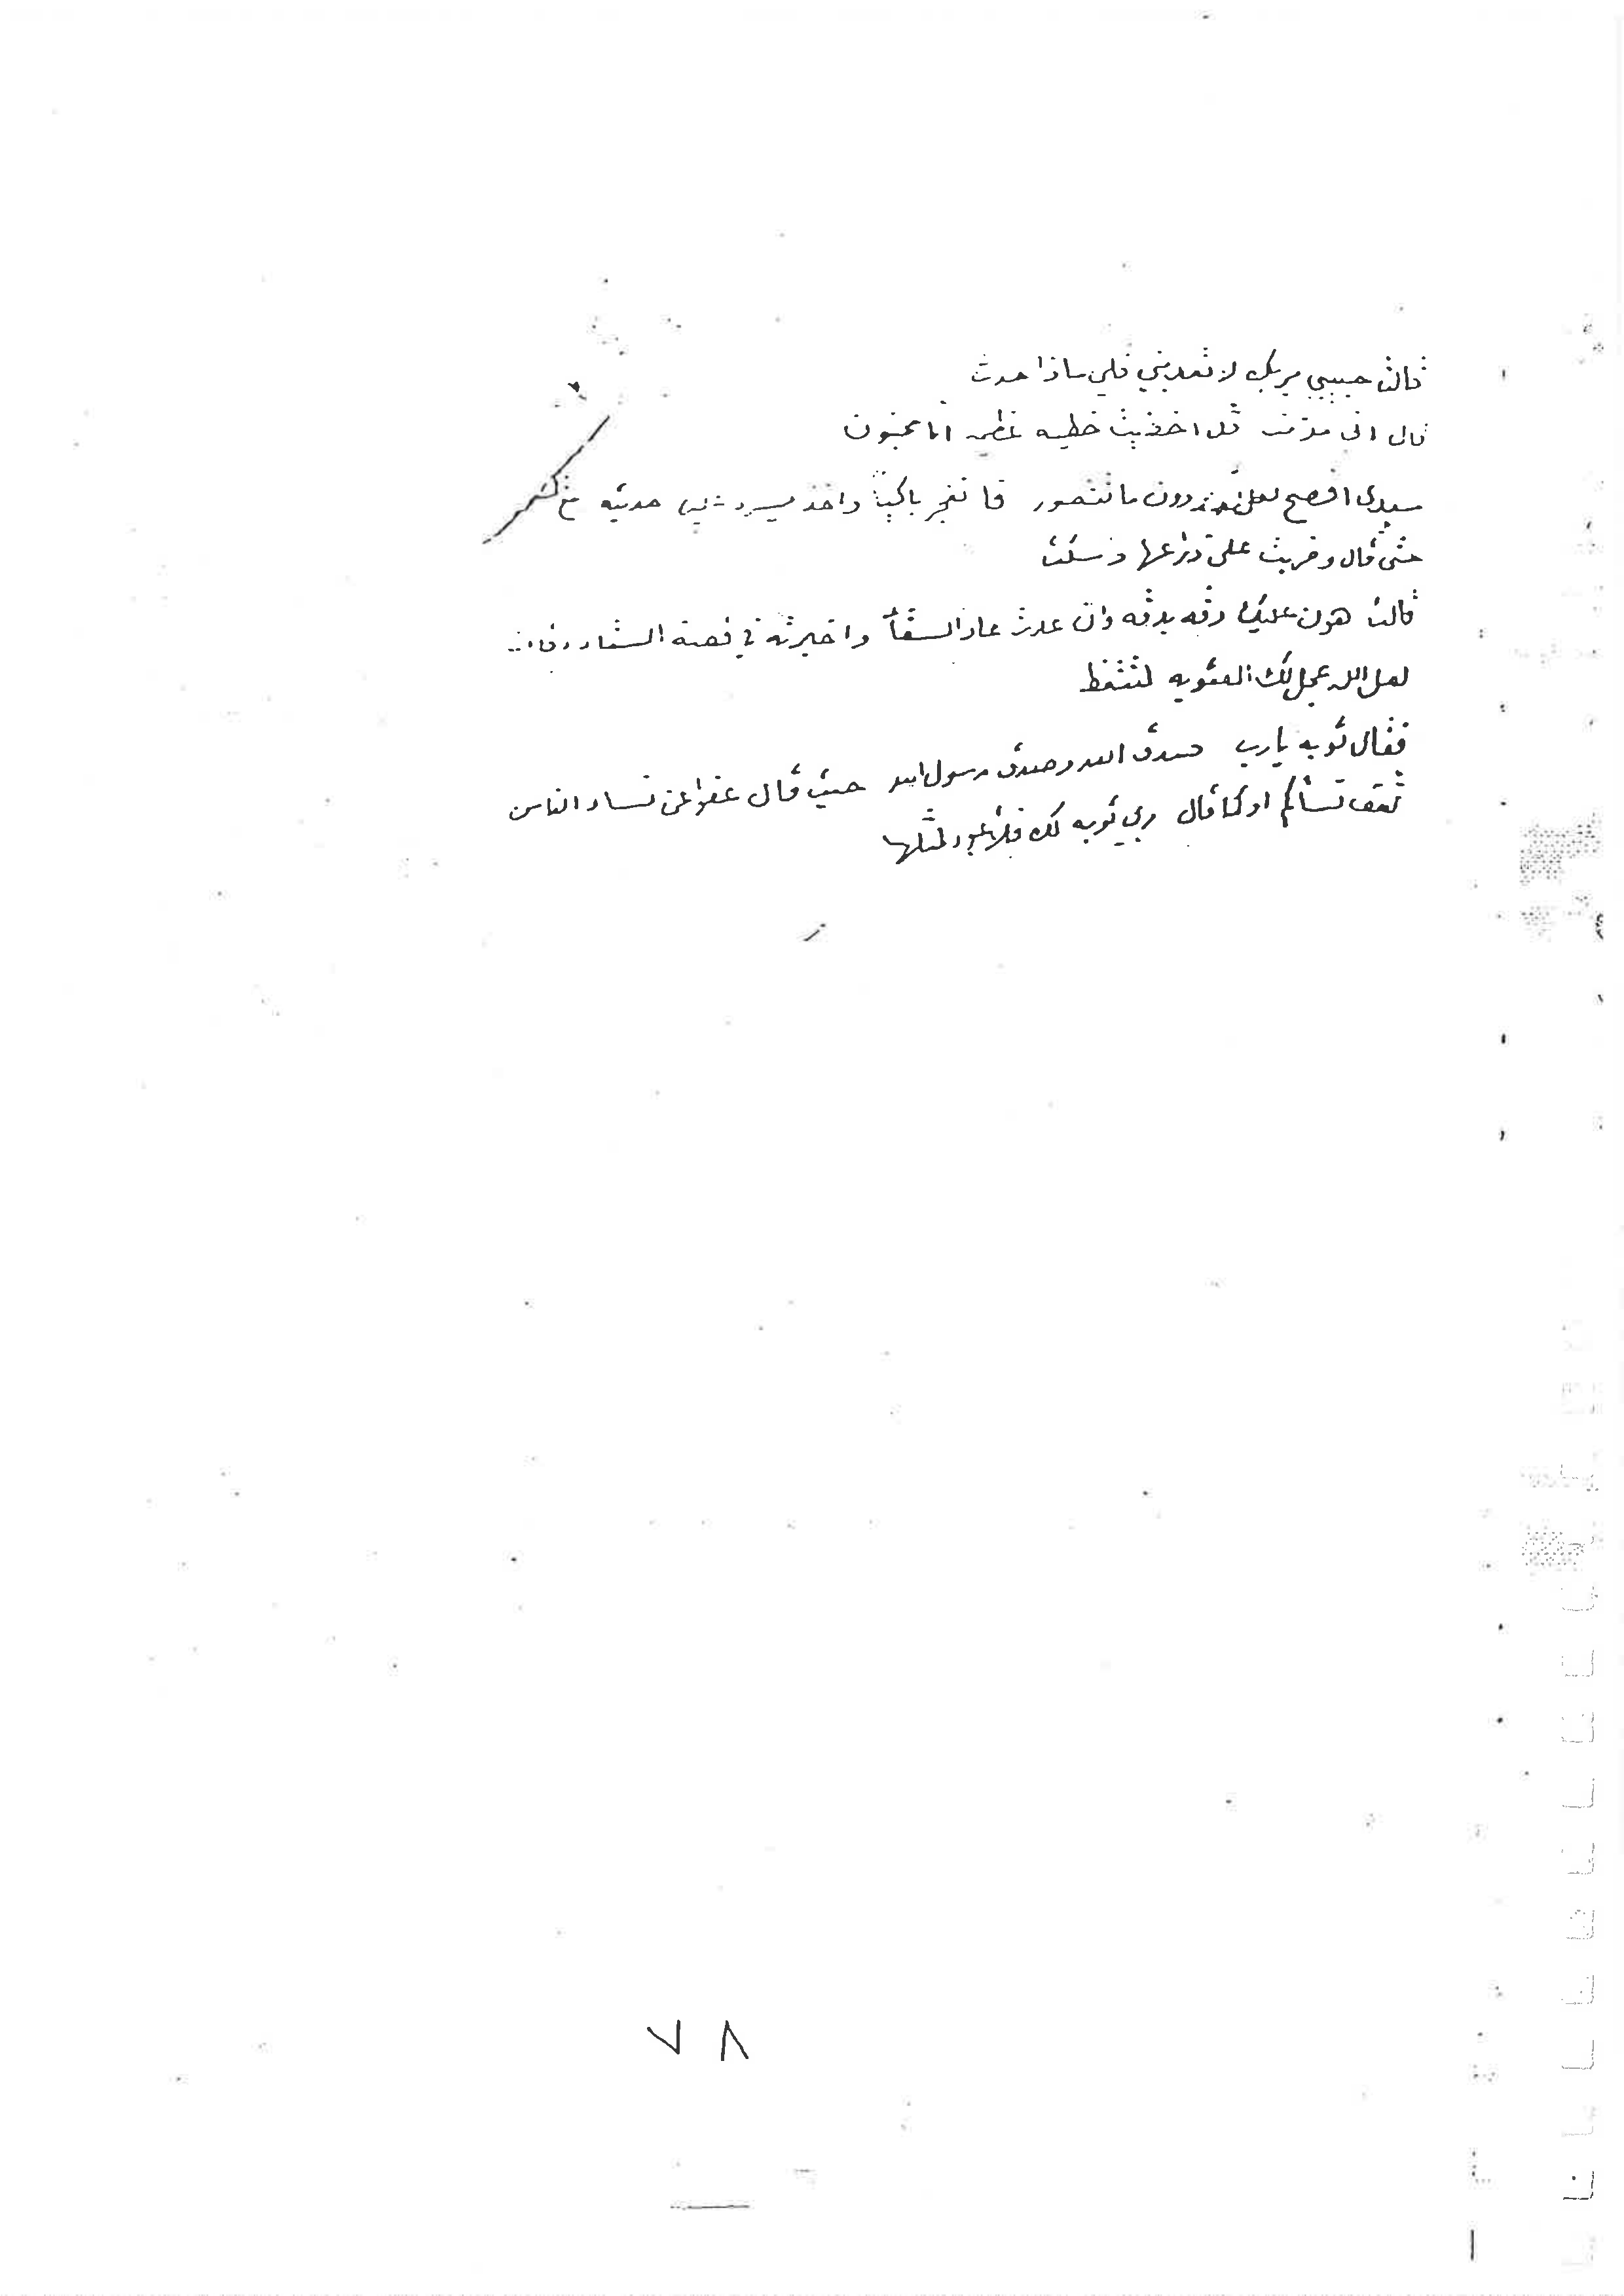 قالت حبيبي بربك لا تعذبني قلي ماذا حدث
قال اني مذنب لقد اخطيت خطيه عظمه انا مجنون
سيدى افصح لعل دون ما نتصور فا نفجر باكياً واخذ يسرد لها حديثه مع
حتى قال وضربت على ذراعها وسكت
قالت هون عليك دقه بدقه وان عدت عاد السقا واخبرته في قصة السقا وقالت
لعل الله عجل لك العقوبه لتتعظ
فقال توبه يارب صدق الله وصدق رسول الله حيث قال عفوا عن نساء الناس
تعف نسائكم او كما قال ربي توبه لك فلا اعود لمثلها
٧٨